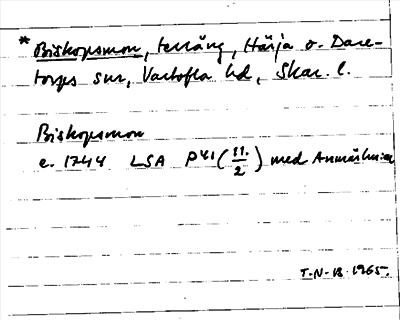 * Biskopsmon, terräng, Härja o. Dare-
torps snr, Vartofta hd, Skar. l.
Biskopsmon
e. 1744 LSA P41 (11./2) med Anmärkning
T.N-B. 1965.